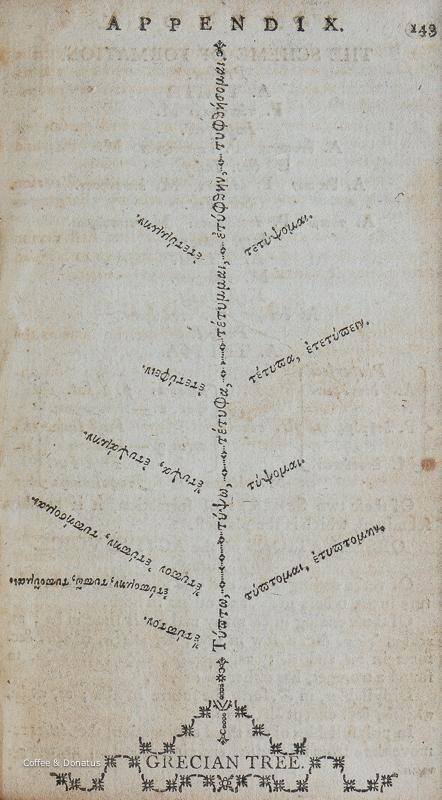 APPENDIX.
143
Τύπτω, τύψω, τέτυφα, τέτυμμαι, ἐτύφθην, τυφθήσομαι.
ἐτετύμμην.
τετύψομαι.
ἐτετύφειν.
τέτυπα, ἐτετύπειν.
ἔτυψα, ἐτυψάμην.
τύψομαι.
ἔτυπον ἐτύπην, τυπήσομαι.
ἐτυπόμην, τυπῶ, τυποῦμαι.
τύπτομαι, ἐτυπτόμην.
ἔτυπτον.
GRECIAN TREE.
Coffee & Donatus